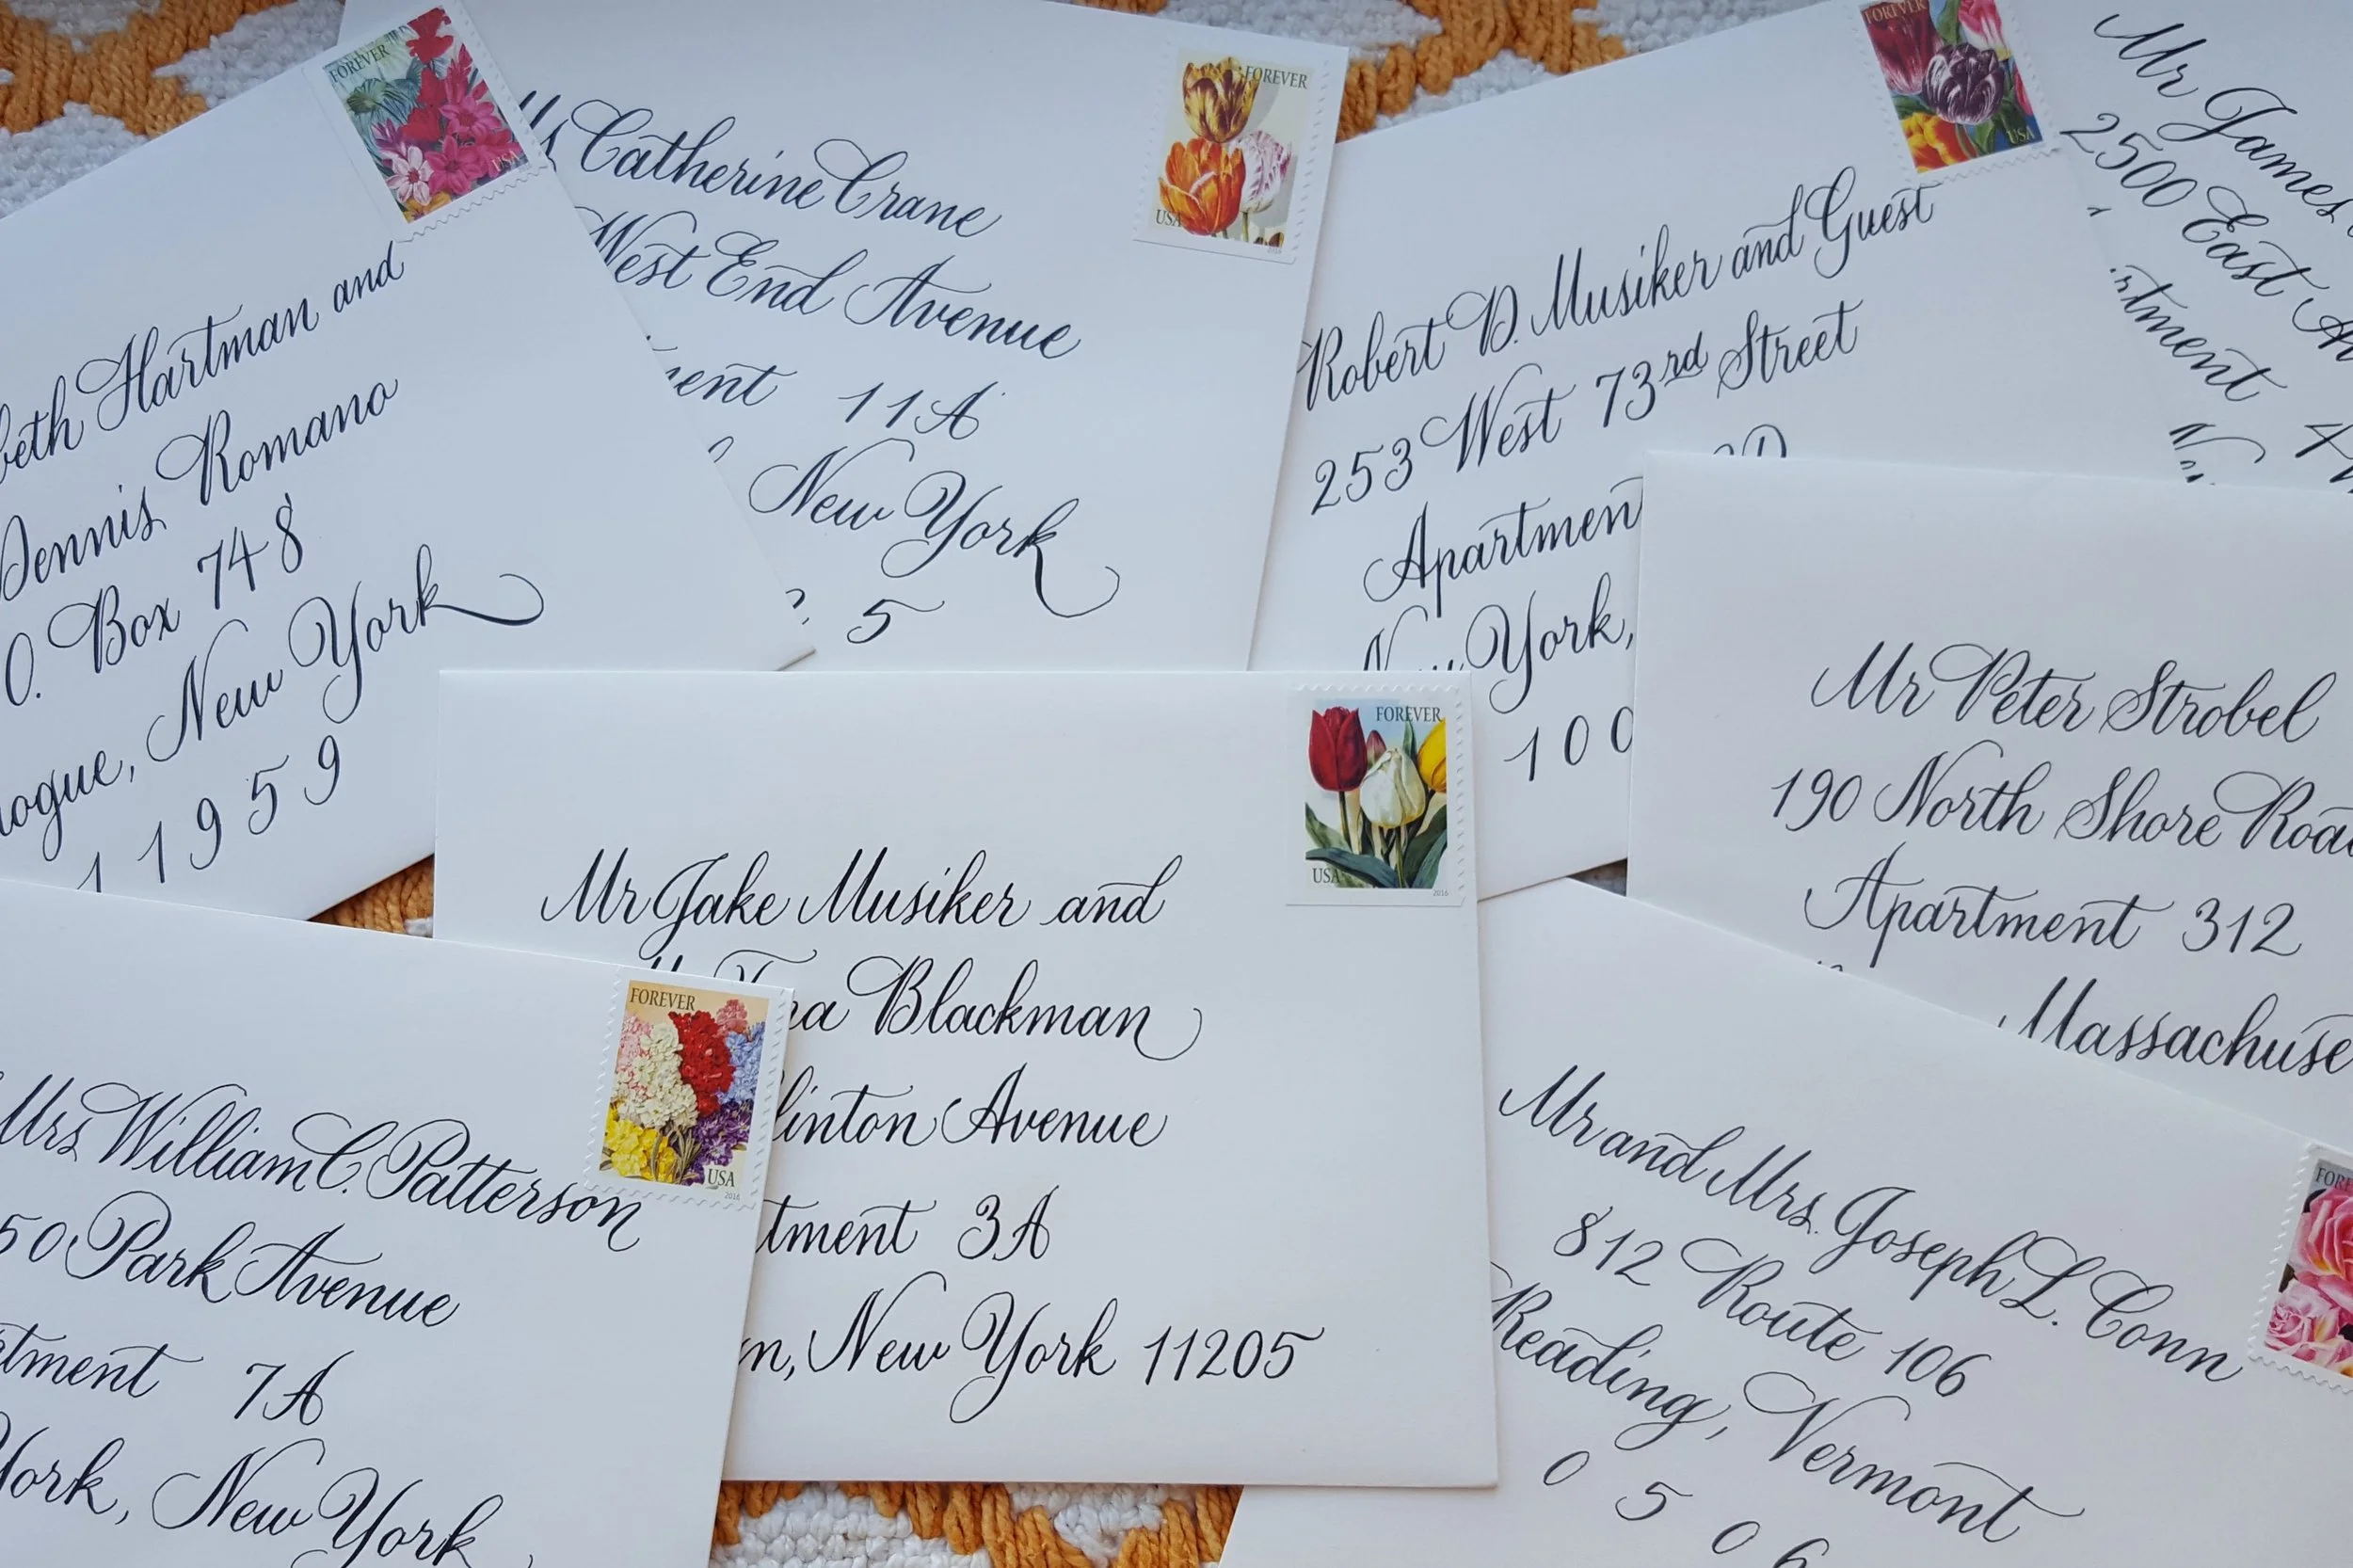 FOREVER
USA
Hartman and
Dennis Romano
O. Box 748
New York
11959
FOREVER
USA
Catherine Crane
West End Avenue
11A
New York
5
FOREVER
USA
Robert D. Musiker and Guest
253 West 73rd Street
New York,
100
Mr James
2500 East
4
Mr Peter Strobel
190 North Shore Road
Apartment 312
FOREVER
USA
2016
Mr Jake Musiker and
Blackman
Avenue
3A
New York 11205
FOREVER
USA
2016
Mrs William C. Patterson
50 Park Avenue
7A
York, New York
Mr and Mrs. Joseph L. Conn
812 Route 106
Reading, Vermont
0506